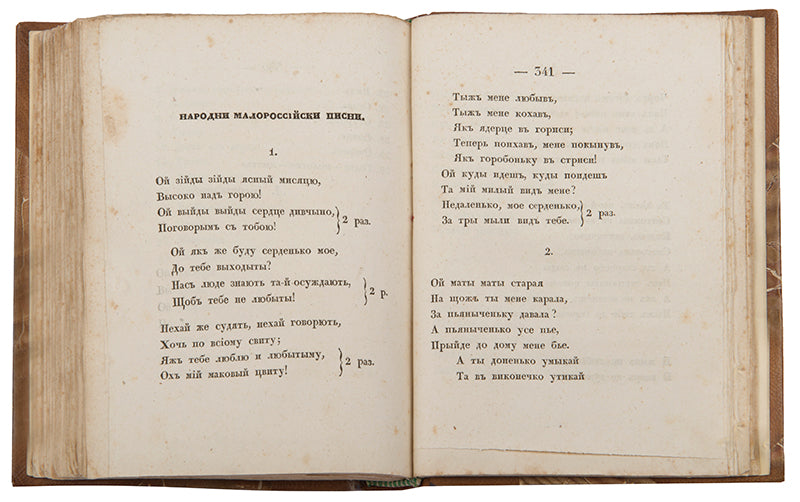 НАРОДНИ МАЛОРОССІЙСКИ ПИСНИ.
1.
Ой зійды зійды ясный мисяцю,
Высоко надъ горою!
Ой выйды выйды сердце дивчыно,
Поговорымъ съ тобою!
2 раз.
Ой якъ же буду серденько мое,
До тебе выходыты?
Насъ люде знають та-й осуждають,
Щобъ тебе не любыты!
2 р.
Нехай же судять, нехай говорють,
Хочь по всіому свиту;
Яжъ тебе люблю и любытыму,
Охъ мій маковый цвиту!
2 раз.
— 341 —
Тыжъ мене любывъ,
Тыжъ мене кохавъ,
Якъ ядерце въ гориси;
Теперь поихавъ, мене покынувъ,
Якъ горобоньку въ стриси!
Ой куды идешъ, куды поидешъ
Та мій милый видъ мене?
Недаленько, мое серденько,
За тры мыли видъ тебе.
2 раз.
2.
Ой маты маты старая
На щожъ ты мене карала,
За пьяныченьку давала?
А пьяныченько усе пье,
Прыйде до дому мене бье.
А ты доненько умыкай
Та въ виконечко утикай